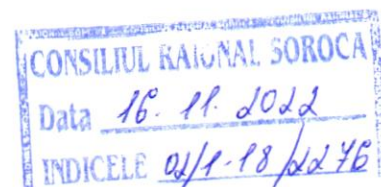 CONSILIUL RAIONAL SOROCA
Data 16. 11. 2022
INDICELE 02/1-18/2276